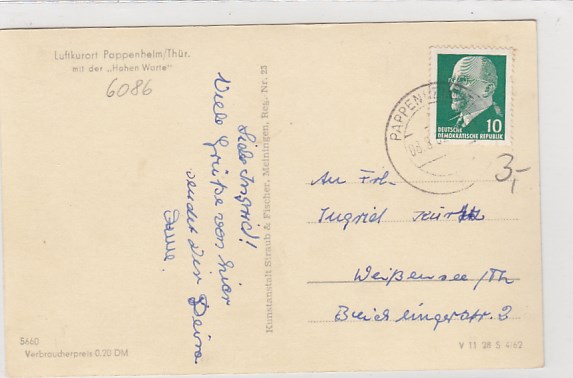 Luftkurort Pappenheim/Thür.
mit der „Hohen Warte"
6086
Liebe Ingrid!
Viele Grüße von hier
sendet Dir Deine
Kunstanstalt Straub & Fischer, Meiningen, Reg. Nr. 23
PAPPENH
10
DEUTSCHE
DEMOKRATISCHE REPUBLIK
3,-
An Frl.
Ingrid
Weißensee/Th
Breichlingerstr. 2
5660
Verbraucherpreis 0.20 DM
V 11 28 S 4/62